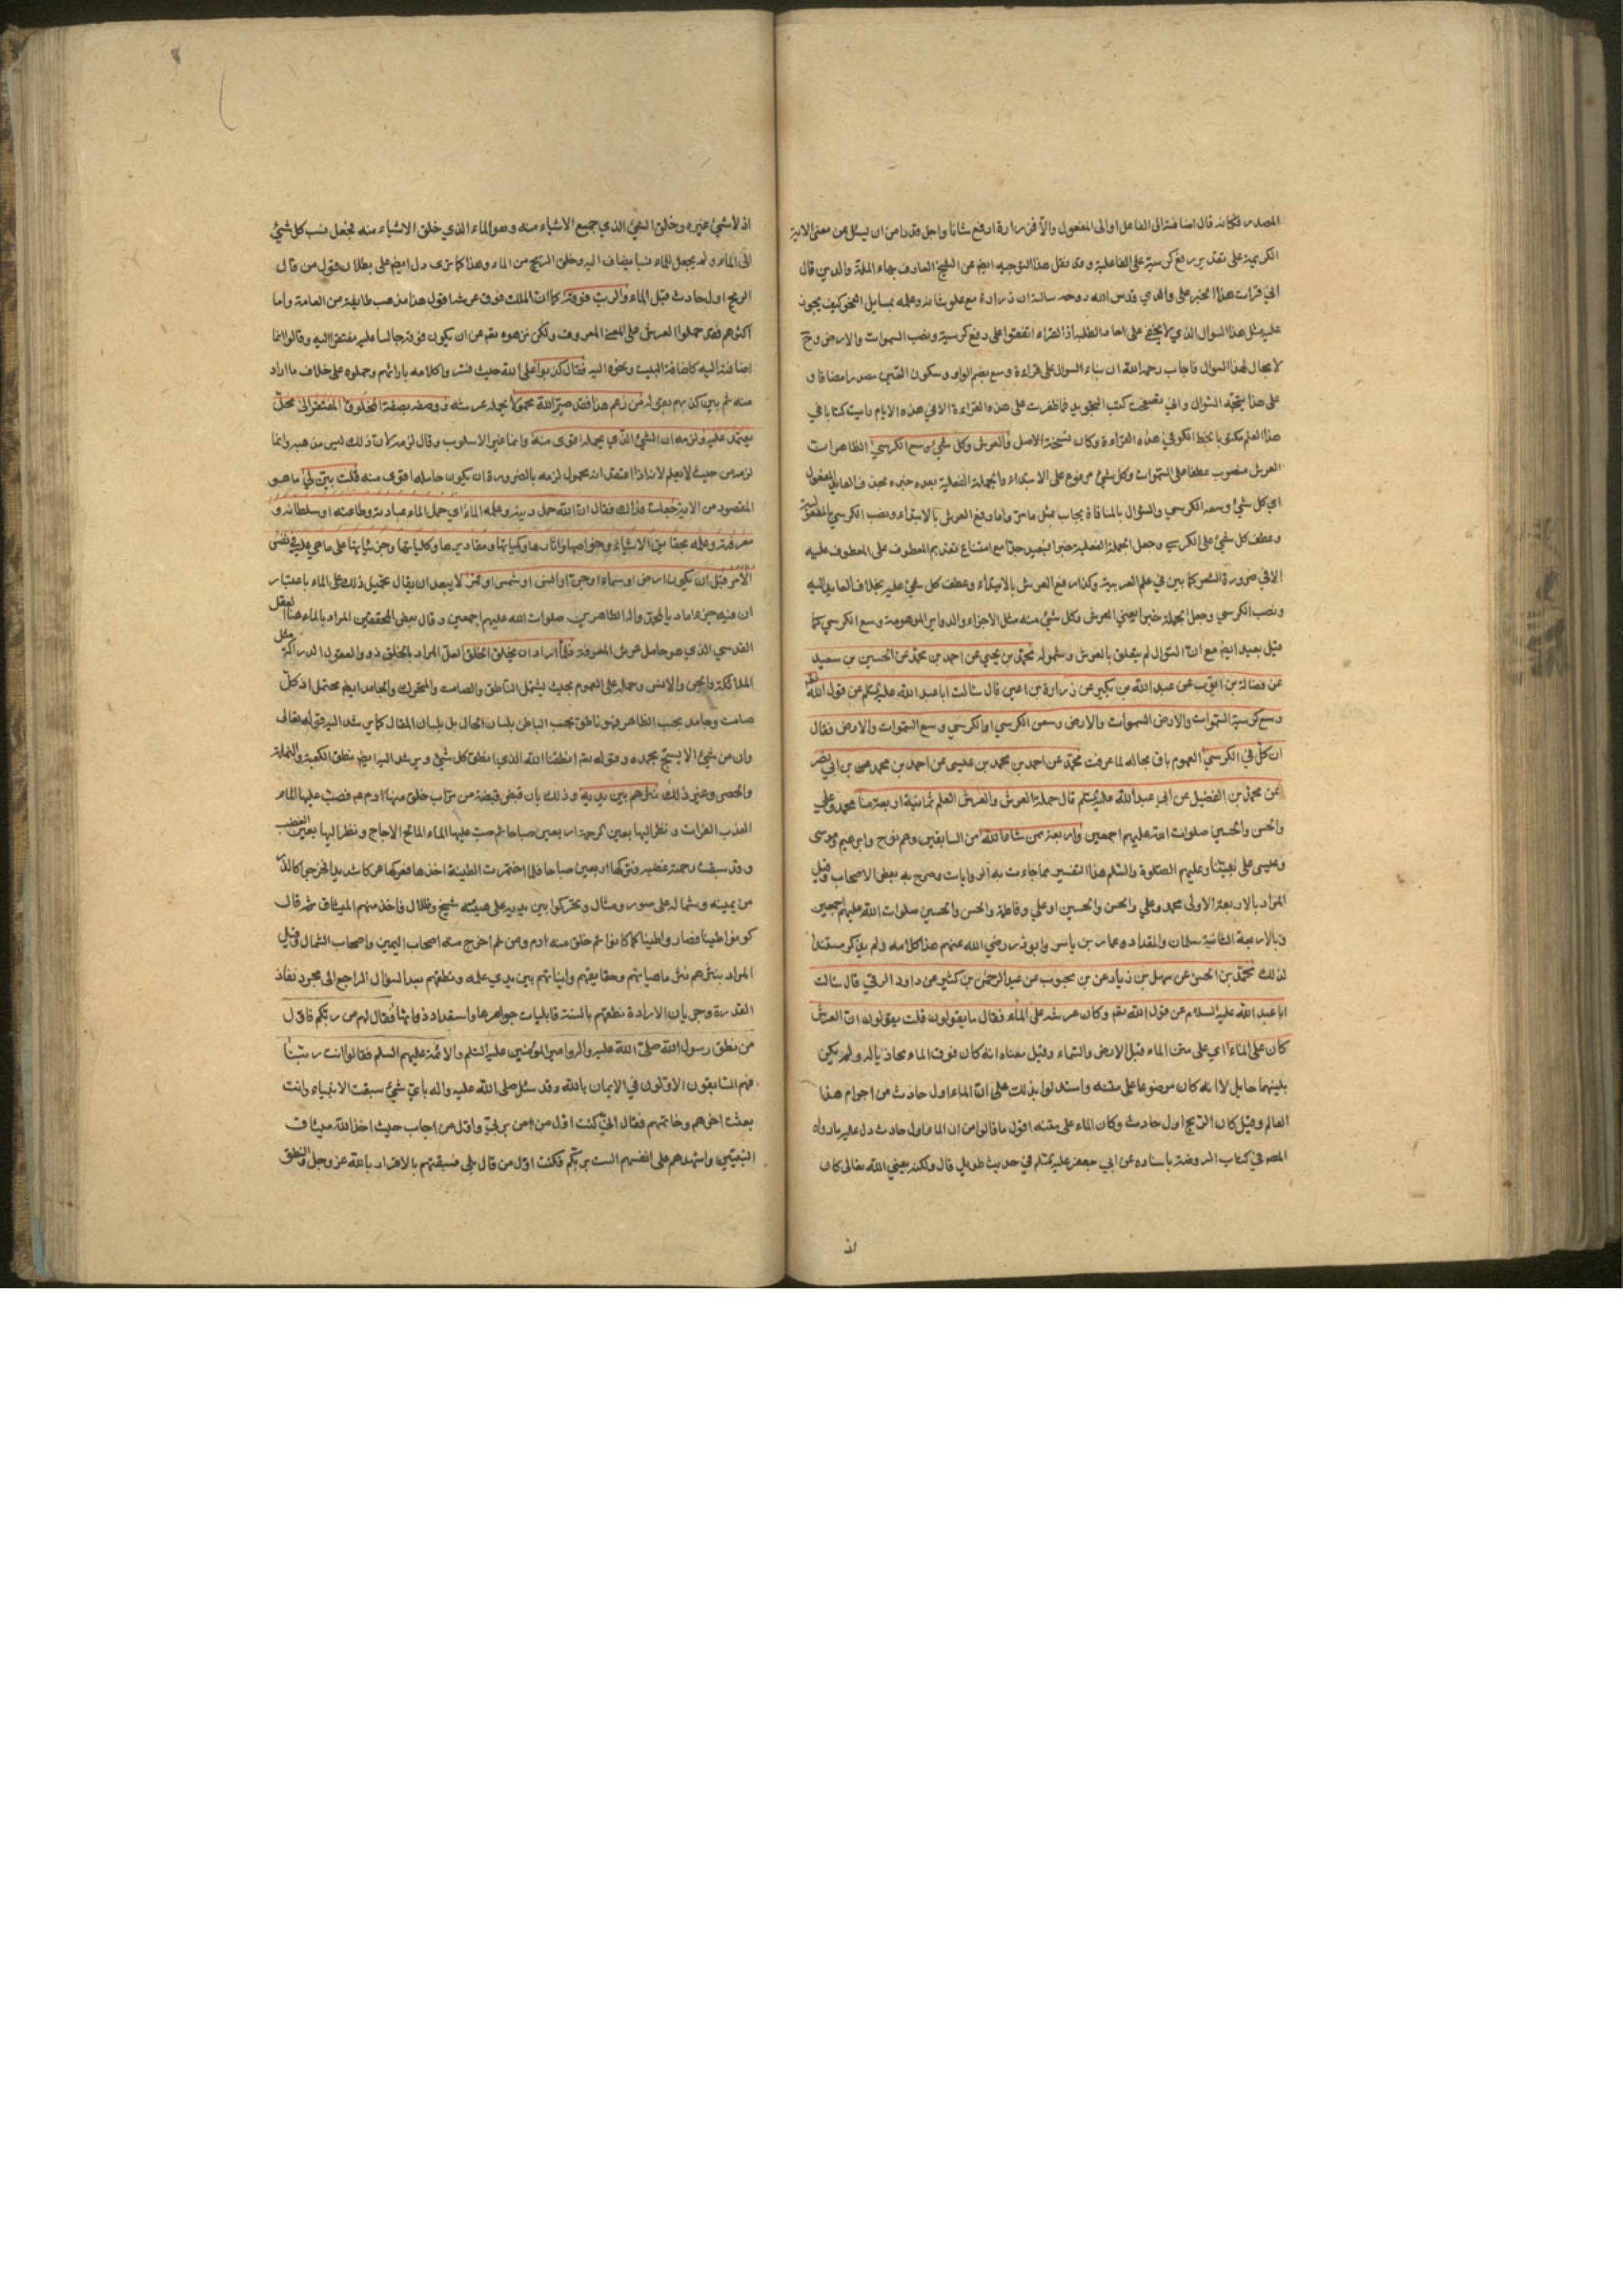 المصدر فكانه قال اضافته الى الفاعل او الى المفعول والا فزرارة ارفع شانا واجل قدرا من ان يسئل عن معنى الاية
الكريمة على تقدير رفع كرسيه على الفاعلية وقد نقل هذا التوجيه ايضا عن الشيخ العارف بهاء الملة والدين قال
اني قرات هذا الخبر على والدي قدس الله روحه سالته ان زرارة مع علو شانه وعلمه بمسايل النحو كيف يجوز
عليه مثل هذا السوال الذي لا يخفى على احاد الطلبه اذ القراء اتفقوا على رفع كرسيه ونصب السموات والارض وح
لا مجال لهذا السوال فاجاب رحمه الله ان بناء السوال على قراءة وسع بضم الواو وسكون السين مصدرا مضافا و
على هذا يتجه السوال واني تصفحت كتب التجويد فما ظفرت على هذه القراءة الا في هذه الايام رايت كتابا في
هذا العلم مكتوبا بخط الكوفي هذه القراءة وكان نسخة الاصل والعرش وكل شيء وسع الكرسي الظاهر ان
العرش منصوب عطفا على السموات وكل شيء مرفوع على الابتداء والجملة الفعلية بعده خبره بحذف العايد المفعول
اي كل شيء وسعه الكرسي والسؤال بالمنافاة يجاب بمثل ما مر واما رفع العرش بالابتداء ونصب الكرسي بالمفعولية
وعطف كل شيء على الكرسي وجعل الجملة الفعلية خبرا فبعيد جدا مع امتناع تقديم المعطوف على المعطوف عليه
الا في ضرورة الشعر كما بين في علم العربية وكذا رفع العرش بالابتداء وعطف كل شيء عليه بخلاف العايد اليه
ونصب الكرسي وجعل الجملة خبرا يعني العرش وكل شيء منه مثل الاجزاء والدواير الموهومة وسع الكرسي كما
قيل بعيد ايضا مع ان السؤال لم يتعلق بالعرش وشموله محمد بن يحيى عن احمد بن محمد عن الحسين بن سعيد
عن فضالة بن ايوب عن عبد الله بن بكير عن زرارة بن اعين قال سالت ابا عبد الله عليه السلم عن قول الله
وسع كرسيه السموات والارض السموات والارض وسعن الكرسي او الكرسي وسع السموات والارض فقال
ان كل في الكرسي العموم باق بحاله لما عرفت محمد عن احمد بن محمد بن عيسى عن احمد بن محمد بن ابي نصر
عن محمد بن الفضيل عن ابي عبد الله عليه السلم قال حملة العرش والعرش العلم ثمانية اربعة منا محمد وعلي
والحسن والحسين صلوات الله عليهم اجمعين واربعة ممن شاء الله من السابقين وهم نوح وابرهيم وموسى
وعيسى على نبينا وعليهم الصلوة والسلم هذا التفسير مما جاءت به الروايات وصرح به بعض الاصحاب وقيل
المراد بالاربعة الاولى محمد وعلي والحسن والحسين او علي وفاطمة والحسن والحسين صلوات الله عليهم اجمعين
وبالاربعة الثانية سلمان والمقداد وعمار بن ياسر وابوذر رضي الله عنهم هذا كلامه ولم يذكر مستندا
لذلك محمد بن الحسن عن سهل بن زياد عن بن محبوب عن عبد الرحمن بن كثير عن داود الرقي قال سالت
ابا عبد الله عليه السلام عن قول الله تعم وكان عرشه على الماء فقال ما يقولون قلت يقولون ان العرش
كان على الماء اي على متن الماء قبل الارض والسماء وقيل معناه انه كان فوق الماء محاذيا له ولم يكن
بينهما حايل لا انه كان موضوعا على متنه واستدلوا بذلك على ان الماء اول حادث من اجرام هذا
العالم وقيل كان الريح اول حادث وكان الماء على متنه اقول ما قالوا من ان الماء اول حادث دل عليه ما رواه
المص في كتاب الروضة باسناده عن ابي جعفر عليه السلم في حديث طويل قال ولكنه يعني الله تعالى كان
اذ
اذ لا شيء غيره وخلق الشيء الذي جميع الاشياء منه وهو الماء الذي خلق الاشياء منه فجعل نسب كل شيء
الى الماء ولم يجعل للماء نسبا يضاف اليه وخلق الريح من الماء وهذا كما ترى دل ايضا على بطلان قول من قال
الريح اول حادث قبل الماء والرب فوقه كما ان الملك فوق عرشنا قول هذا مذهب طايفة من العامة واما
اكثرهم فقد حملوا العرش على المعنى المعروف ولكن نزهوه تعم عن ان يكون فوقه جالسا عليه مفتقرا اليه وقالوا انما
اضافته اليه كاضافة البيت ونحوه اليه فقال كذبوا على الله حيث فسروا كلامه بارائهم وحملوه على خلاف ما اراد
منه ثم بين كذبهم بقوله من زعم هذا فقد صير الله محمولا يحمله عرشه ووصفه بصفة المخلوق المفتقر الى محل
يعتمد عليه ولزمه ان الشيء الذي يحمله اقوى منه وانما غير الاسلوب وقال لزمه لان ذلك ليس مذهبه وانما
لزمه من حيث لا يعلم لانه اذا اعتقد انه محمول لزمه بالضرورة ان يكون حامله اقوى منه قلت بين لي ما هو
المقصود من الاية جعلت فداك فقال ان الله حمل دينه وعلمه الماء اي حمل الماء عبادته وطاعته او سلطانه و
معرفته وعلمه بحقايق الاشياء وخواصها واثارها وكمياتها ومقاديرها وكلياتها وجزئياتها على ما هي عليه في نفس
الامر قبل ان يكون ارض او سماء او جن او انس او شمس او قمر لا يبعد ان يقال تحميل ذلك على الماء باعتبار
ان فيه جزء مادة محمد واله الطاهرين صلوات الله عليهم اجمعين وقال بعض المحققين المراد بالماء هنا العقل
القدسي الذي هو حامل عرش المعرفة فلما اراد ان يخلق الخلق لعل المراد بالخلق ذوو العقول المدركة مثل
الملائكة والجن والانس وحمله على العموم بحيث يشمل الناطق والصامت والمتحرك والجامد ايضا محتمل اذ كل
صامت وجامد بحسب الظاهر فهو ناطق بحسب الباطن بلسان الحال بل بلسان المقال كما يرشد اليه قوله تعالى
وان من شيء الا يسبح بحمده وقوله تعم انطقنا الله الذي انطق كل شيء ويرشد اليه ايضا نطق الكعبة والنملة
والحصى وغير ذلك نثرهم بين يديه وذلك بان قبض قبضة من تراب خلق منها ادم عم فصب عليها الماء
العذب الفرات ونظر اليها بعين الرحمة اربعين صباحا ثم صب عليها الماء المالح الاجاج ونظر اليها بعين الغضب
وقد سبقت رحمته غضبه وتركها اربعين صباحا فلما اختمرت الطينة اخذها فعركها عركا شديدا فخرجوا كالذر
من يمينه وشماله على صور ومثال وتحركوا بين يديه على هيئة شبح وظلال فاخذ منهم الميثاق ثم قال
كونوا طينا فصاروا طينا كما كانوا ثم خلق منه ادم ومن ثم اخرج منه اصحاب اليمين واصحاب الشمال وقيل
المراد بنثرهم نثر ماهياتهم وحقايقهم وانياتهم بين يدي علمه ونطقهم بعد السؤال الراجع الى مجرد نفاذ
القدرة وجريان الارادة نطقهم بالسنة قابليات جواهرها واستعداد ذواتها فقال لهم من ربكم فاول
من نطق رسول الله صلى الله عليه واله وامير المؤمنين عليه السلم والائمة عليهم السلم فقالوا انت ربنا
فهم السابقون الاولون في الايمان بالله وقد سئل صلى الله عليه واله باي شيء سبقت الانبياء وانت
بعثت اخرهم وخاتمهم فقال اني كنت اول من امن بربي واول من اجاب حيث اخذ الله ميثاق
النبيين واشهدهم على انفسهم الست بربكم فكنت اول من قال بلى فسبقتهم بالاقرار بالله عز وجل والنطق